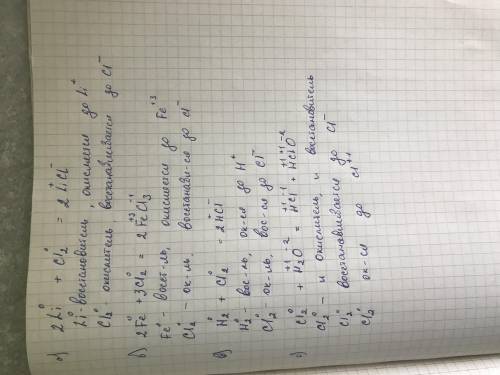 а) 2Li⁰ + Cl₂⁰ = 2Li⁺Cl⁻
Li⁰ - восстановитель, окисляется до Li⁺
Cl₂⁰ окислитель, восстанавливается до Cl⁻
б) 2Fe⁰ + 3Cl₂⁰ = 2Fe⁺³Cl₃⁻¹
Fe⁰ - восст-ль, окисляется до Fe⁺³
Cl₂⁰ - ок-ль, восстанавл-ся до Cl⁻
в) H₂⁰ + Cl₂⁰ = 2H⁺Cl⁻
H₂⁰ - вос-ль, ок-ся до H⁺
Cl₂⁰ - ок-ль, вос-ся до Cl⁻
г) Cl₂⁰ + H₂⁺¹O⁻² = H⁺¹Cl⁻¹ + H⁺¹Cl⁺¹O⁻²
Cl₂⁰ - и окислитель, и восстановитель
Cl₂⁰ восстанавливается до Cl⁻
Cl₂⁰ ок-ся до Cl⁺¹